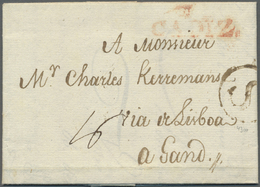 CADIZ
A Monsieur
Mr Charles Kerremans
16 via de Lisboa
a Gand.